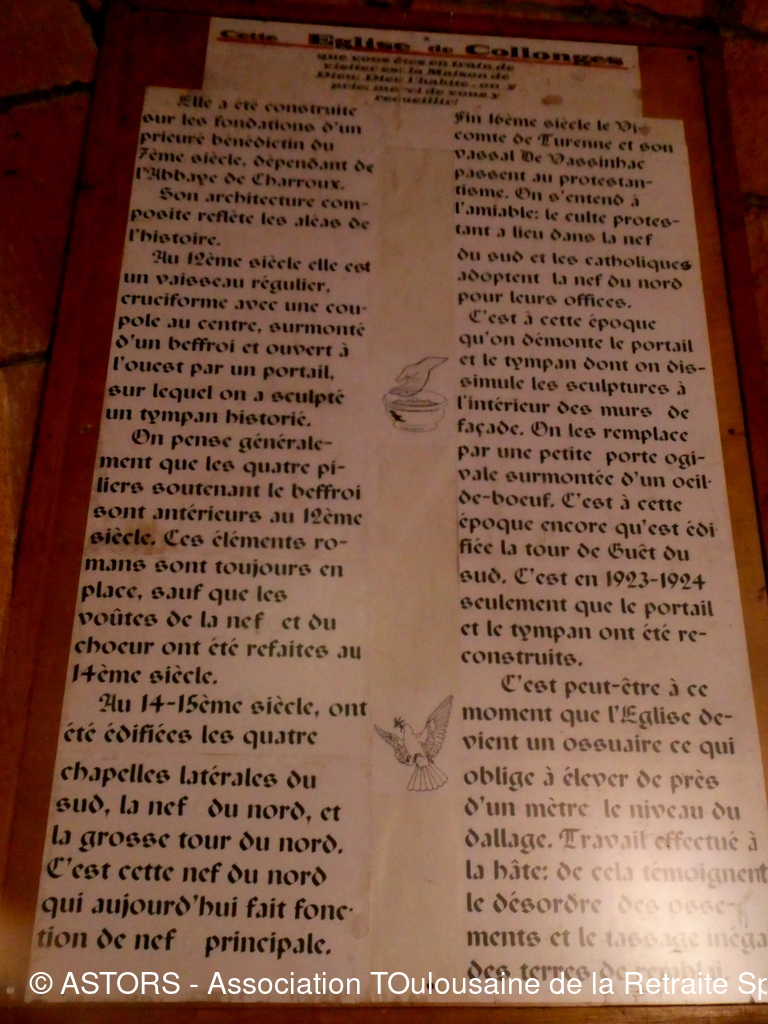 Cette Eglise de Collonges
que vous êtes en train de
visiter est la Maison de
Dieu. Dieu l'habite, on y
prie, merci de vous y
recueillir!
Elle a été construite
sur les fondations d'un
prieuré bénédictin du
7ème siècle, dépendant de
l'Abbaye de Charroux.
Son architecture com-
posite reflète les aléas de
l'histoire.
Au 12ème siècle elle est
un vaisseau régulier,
cruciforme avec une cou-
pole au centre, surmonté
d'un beffroi et ouvert à
l'ouest par un portail,
sur lequel on a sculpté
un tympan historié.
On pense générale-
ment que les quatre pi-
liers soutenant le beffroi
sont antérieurs au 12ème
siècle. Ces éléments ro-
mans sont toujours en
place, sauf que les
voûtes de la nef et du
choeur ont été refaites au
14ème siècle.
Au 14-15ème siècle, ont
été édifiées les quatre
chapelles latérales du
sud, la nef du nord, et
la grosse tour du nord.
C'est cette nef du nord
qui aujourd'hui fait fonc-
tion de nef principale.
Fin 16ème siècle le Vi-
comte de Turenne et son
vassal De Vassinhac
passent au protestan-
tisme. On s'entend à
l'amiable: le culte protes-
tant a lieu dans la nef
du sud et les catholiques
adoptent la nef du nord
pour leurs offices.
C'est à cette époque
qu'on démonte le portail
et le tympan dont on dis-
simule les sculptures à
l'intérieur des murs de
façade. On les remplace
par une petite porte ogi-
vale surmontée d'un oeil-
de-boeuf. C'est à cette
époque encore qu'est édi
fiée la tour de Guêt du
sud. C'est en 1923-1924
seulement que le portail
et le tympan ont été re-
construits.
C'est peut-être à ce
moment que l'Eglise de-
vient un ossuaire ce qui
oblige à élever de près
d'un mètre le niveau du
dallage. Travail effectué à
la hâte: de cela témoignent
le désordre des osse-
ments et le tassage inéga
des terres de remblai.
© ASTORS - Association TOulousaine de la Retraite Sp